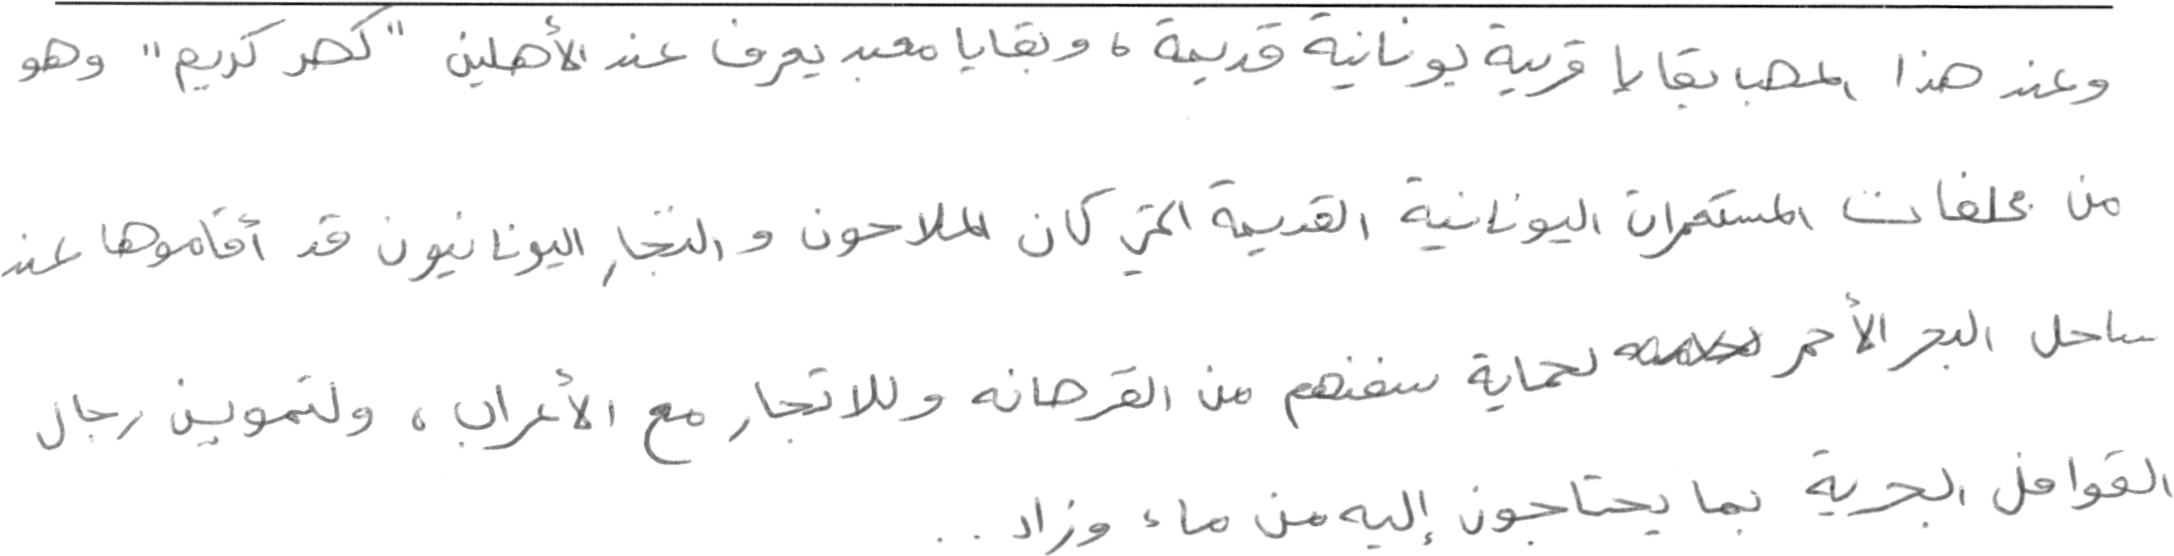 وعند هذا المصب بقايا قرية يونانية قديمة ، وبقايا معبد يعرف عند الأهلين "كصر كريم" وهو
من مخلفات المستعمرات اليونانية القديمة التي كان الملاحون والتجار اليونانيون قد أقاموها عند
ساحل البحر الأحمر لحماية سفنهم من القرصانه وللاتجار مع الأعراب ، ولتموين رجال
القوافل البحرية بما يحتاجون إليه من ماء وزاد ..